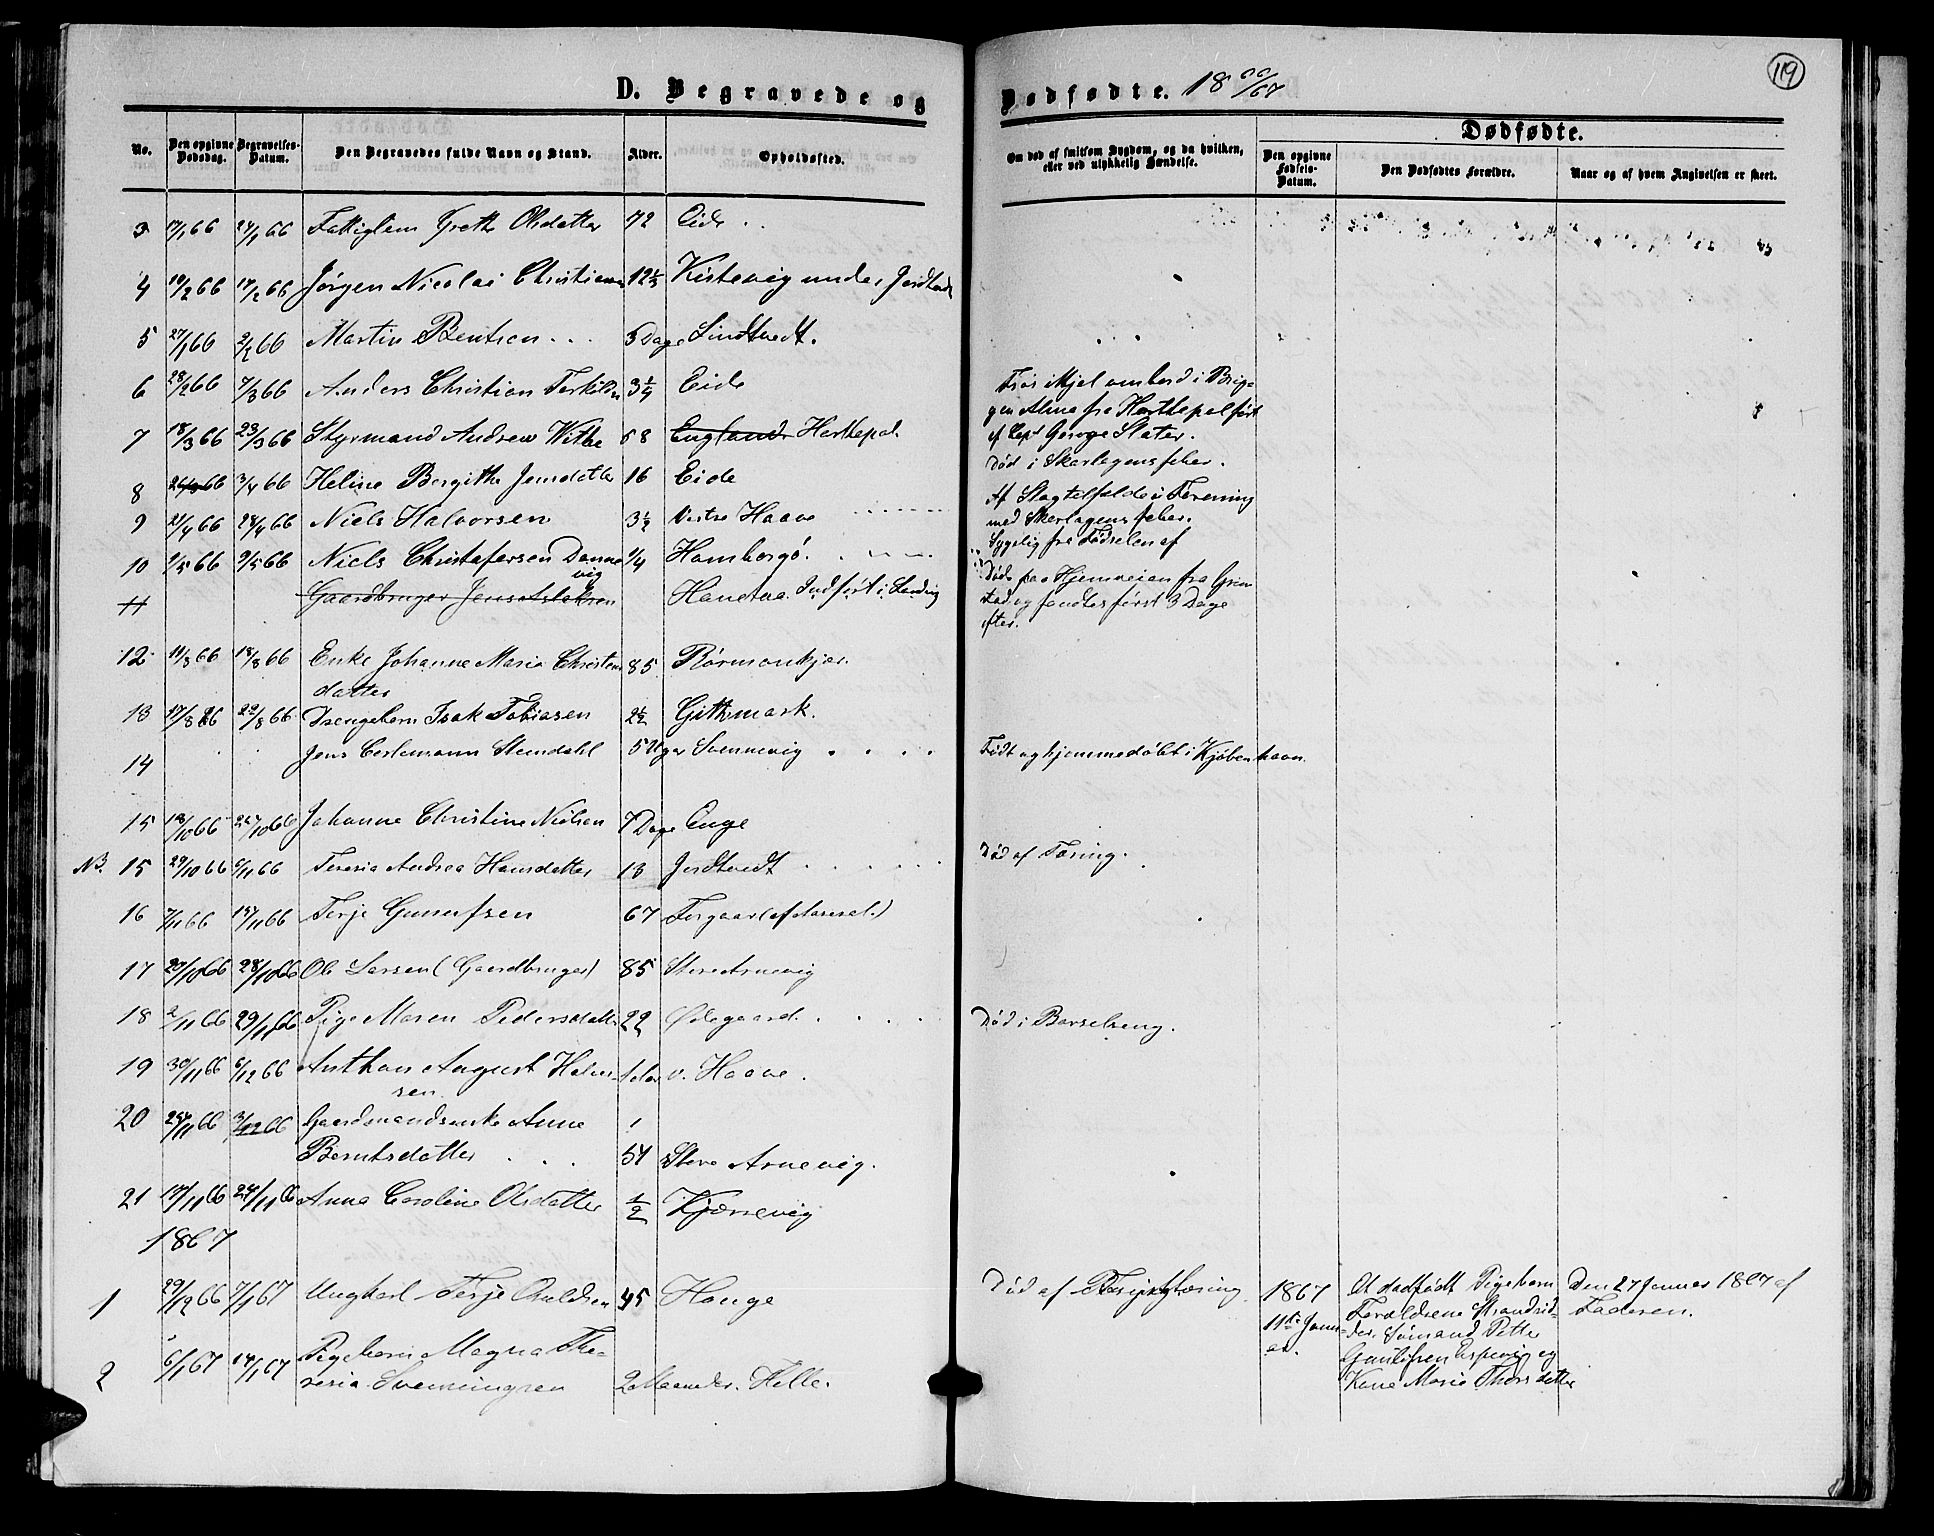 119
D. Begravede og Dødfødte. 18 66/67
Dødfødte.
No.
Den opgivne Dødsdag.
Begravelses-Datum.
Den Begravedes fulde Navn og Stand.
Alder.
Opholdssted.
Om død af smitsom Sygdom, og da hvilken, eller ved ulykkelig Hændelse.
Den opgivne Fødsels-Datum.
Den Dødfødtes Forældre.
Naar og af hvem Angivelsen er skeet.
3 17/1 66 24/1 66 Fattiglem Grethe Olsdatter 72 Eide
4 10/2 66 17/2 66 Jørgen Nicolai Christiansen 12 Kistevig under Jordtvedt
5 27/1 66 2/2 66 Martin Bentsen 3 Dage Lindtvedt.
6 28/2 66 7/3 66 Anders Christian Terkilds 3 1/4 Eide
7 18/3 66 23/3 66 Styrmand Andrew 58 England Hartlepol.
Frøs ihjel ombord i Briggen Alma fra Hartlepol ført
af Capt George Slater.
8 26/3 66 3/4 66 Heline Bergithe Jensdatter 16 Eide
Død i Skarlagensfeber.
9 21/4 66 28/4 66 Niels Halvorsen 3 1/2 Vestre Haave
Af Slagtilfælde i Forening
med Skarlagensfeber.
10 2/5 66 9/5 66 Niels Christofersen Dannevig 1/4 Homborgø.
Sygelig fra Fødselen af
11 Gaardbruger Jens Aslaksen Indført i Landvig
Døde paa Hjemveien fra Grimstad og fandtes først 3 Dage
efter.
12 11/8 66 18/8 66 Enke Johanne Maria Christensdatter 85 Rørmonkjær.
13 17/8 66 22/8 66 Drengebarn Isak Tobiasen 2 1/2 Gitmark.
14 Jens Stendahl 5 Uger Svennevig
Født og hjemmedøbt i Kjøbenhavn
15 18/10 66 26/10 66 Johanne Christine Nielsen 7 Dage Enge
NB. 15 29/10 66 6/11 66 Teresia Andrea Hansdatter 13 Jordtvedt
Død af Tæring.
16 7/11 66 15/11 66 Terje Gunufsen 67
17 20/10 66 28/10 66 Ole Larsen (Gaardbruger) 85 Store Arnevig
18 2/11 66 29/11 66 Pige Maren Pedersdatter 22 Ødegaard.
Død i Barselseng.
19 30/11 66 6/12 66 Anthon August Halvorsen v. Haave.
20 25/11 66 3/12 66 Gaardmandsenke Anne
Berntsdatter 54 Store Arnevig.
21 17/11 66 24/11 66 Anna Caroline Olsdatter 1/2 Kjærrevig
1867
1 29/12 66 7/1 67 Ungkarl Terje 45 Hauge
Død af Tæring
1867
11te Januar.
Et dødfødt Pigebarn
Forældrene Strandsidder, Sømand Petter
Gunufsen Espevig og
Karen Maria Thorsdatter
Den 27 Januar 1867 af
Faderen.
2 6/1 67 14/1 67 Pigebarn Magna Theresia Svenningsen 2 Maaneder. Hille.